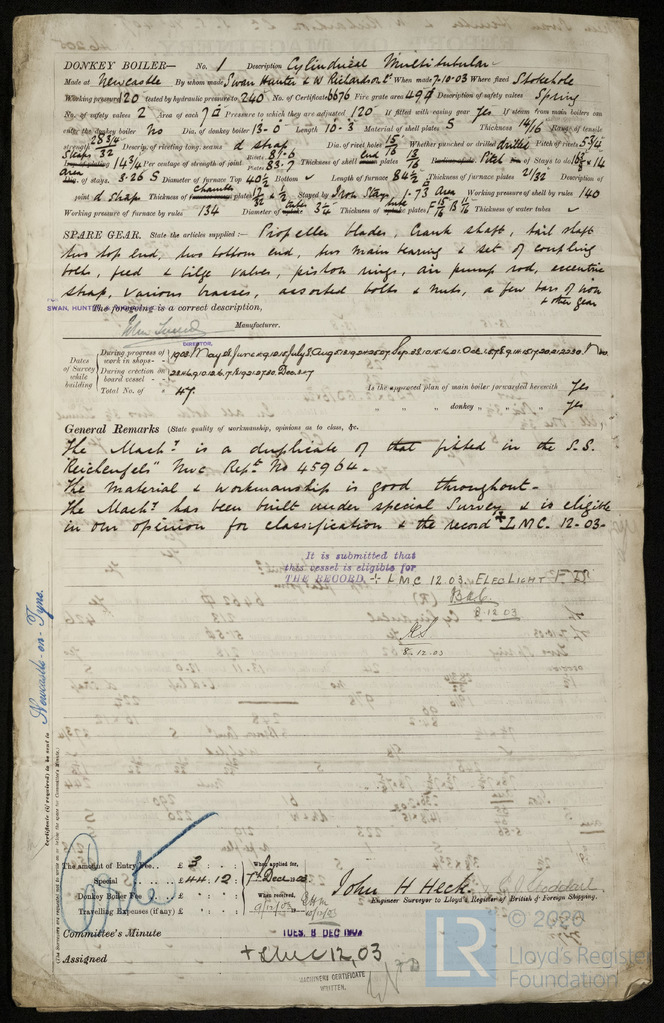 DONKEY BOILER— No. 1 Description Cylindrical Multitubular
Made at Newcastle By whom made Swan Hunter & W Richardson Ld When made 7-10-03 Where fixed Stokehole
Working pressure 120 tested by hydraulic pressure to 240 No. of Certificate 6676 Fire grate area 49 Description of safety valves Spring
No. of safety valves 2 Area of each 7 Pressure to which they are adjusted 120 If fitted with easing gear yes If steam from main boilers can
enter the donkey boiler No Dia. of donkey boiler 13-0 Length 10-3 Material of shell plates S Thickness 14/16 Range of tensile
strength 28 3/4 32 Descrip. of riveting long. seams d strap Dia. of rivet holes 15/16 Whether punched or drilled drilled Pitch of rivets 5 3/4
Straps 14 3/4 Per centage of strength of joint Rivets 87.6 Plates 83.7 Thickness of shell end plates Pitch of Stays to do 16 3/8 x 14
area Dia. of stays. 3.26 S Diameter of furnace Top 40 1/2 Bottom ✓ Length of furnace 84 1/2 Thickness of plates 21/32 Description of
joint d strap Thickness of chamber plates 17/32 & 1/2 Stayed by Iron Stays 1.73 area Working pressure of shell by rules 140
Working pressure of furnace by rules 134 Diameter of tubes 3 1/4 Thickness of tube plates F 15/16 B 11/16 Thickness of water tubes ✓
SPARE GEAR. State the articles supplied:— Propeller blades, Crank shaft, tail shaft
two top end, two bottom end, two main bearing & set of coupling
bolts, feed & bilge valves, piston rings, air pump rod, eccentric
strap, various brasses, assorted bolts & nuts, a few bars of iron
& other gear
The foregoing is a correct description,
SWAN, HUNTER
Manufacturer.
DIRECTOR.
Dates of Survey while building
During progress of work in shops--
During erection on board vessel---
Total No. of 47.
Is the approved plan of main boiler forwarded herewith Yes
" " donkey " " " Yes
General Remarks (State quality of workmanship, opinions as to class, &c.
The Machy is a duplicate of that fitted in the S.S.
"Reichenfels" Nwc Rept No 45964.
The material & workmanship is good throughout.
The Machy has been built under special Survey & is eligible
in our opinion for classification & the record + LMC. 12-03.
It is submitted that
this vessel is eligible for
THE RECORD. + LMC 12.03. ELEC LIGHT F.D.
8.12.03
8.12.03
Certificate (if required) to be sent to Newcastle-on-Tyne.
The amount of Entry Fee.. £ 3
Special £ 44.12
Donkey Boiler Fee £
Travelling Expenses (if any) £
When applied for,
7th Dec 03
When received,
John H Heck.
Engineer Surveyor to Lloyd's Register of British & Foreign Shipping.
Committee's Minute TUES. 8 DEC 1903
Assigned + LMC 12,03
MACHINERY CERTIFICATE
WRITTEN.
© 2020
Lloyd's Register
Foundation
LR